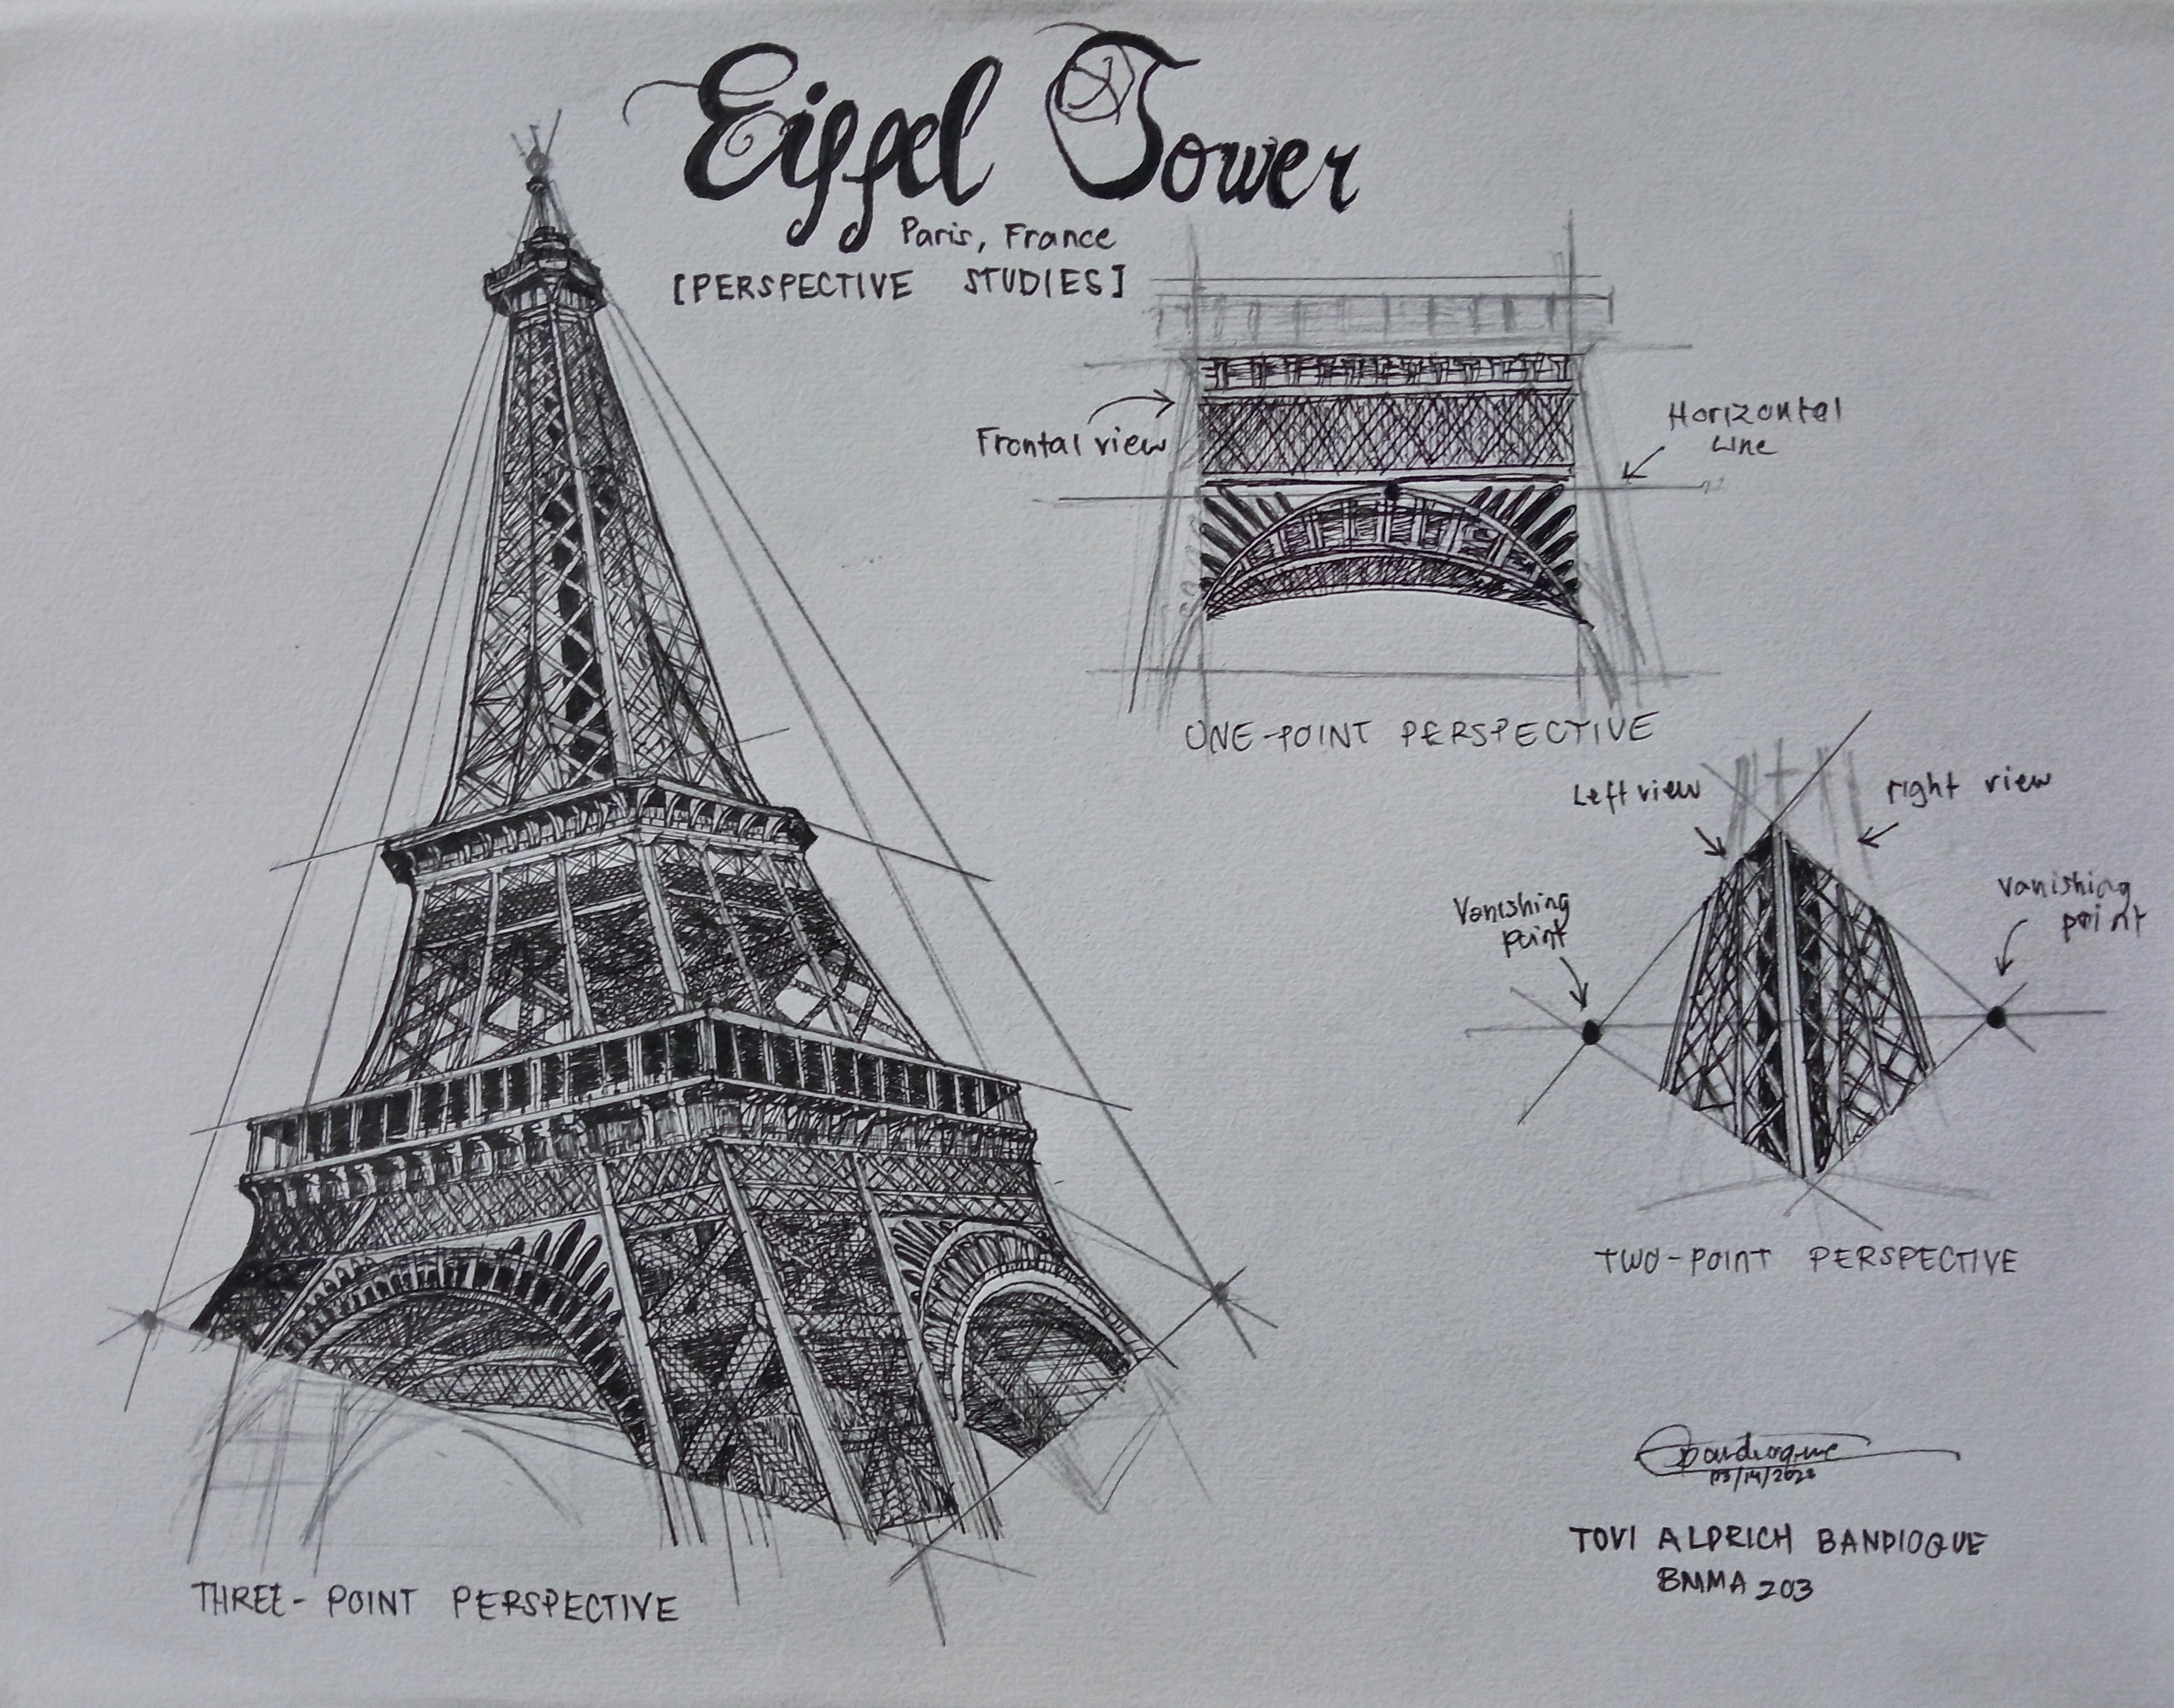 Eiffel Tower
Paris, France
[PERSPECTIVE STUDIES]
Frontal view
Horizontal
Line
ONE-POINT PERSPECTIVE
Left view
right view
Vanishing
point
vanishing
point
TWO-POINT PERSPECTIVE
THREE-POINT PERSPECTIVE
Bandioque
TOVI ALDRICH BANDIOQUE
BMMA 203